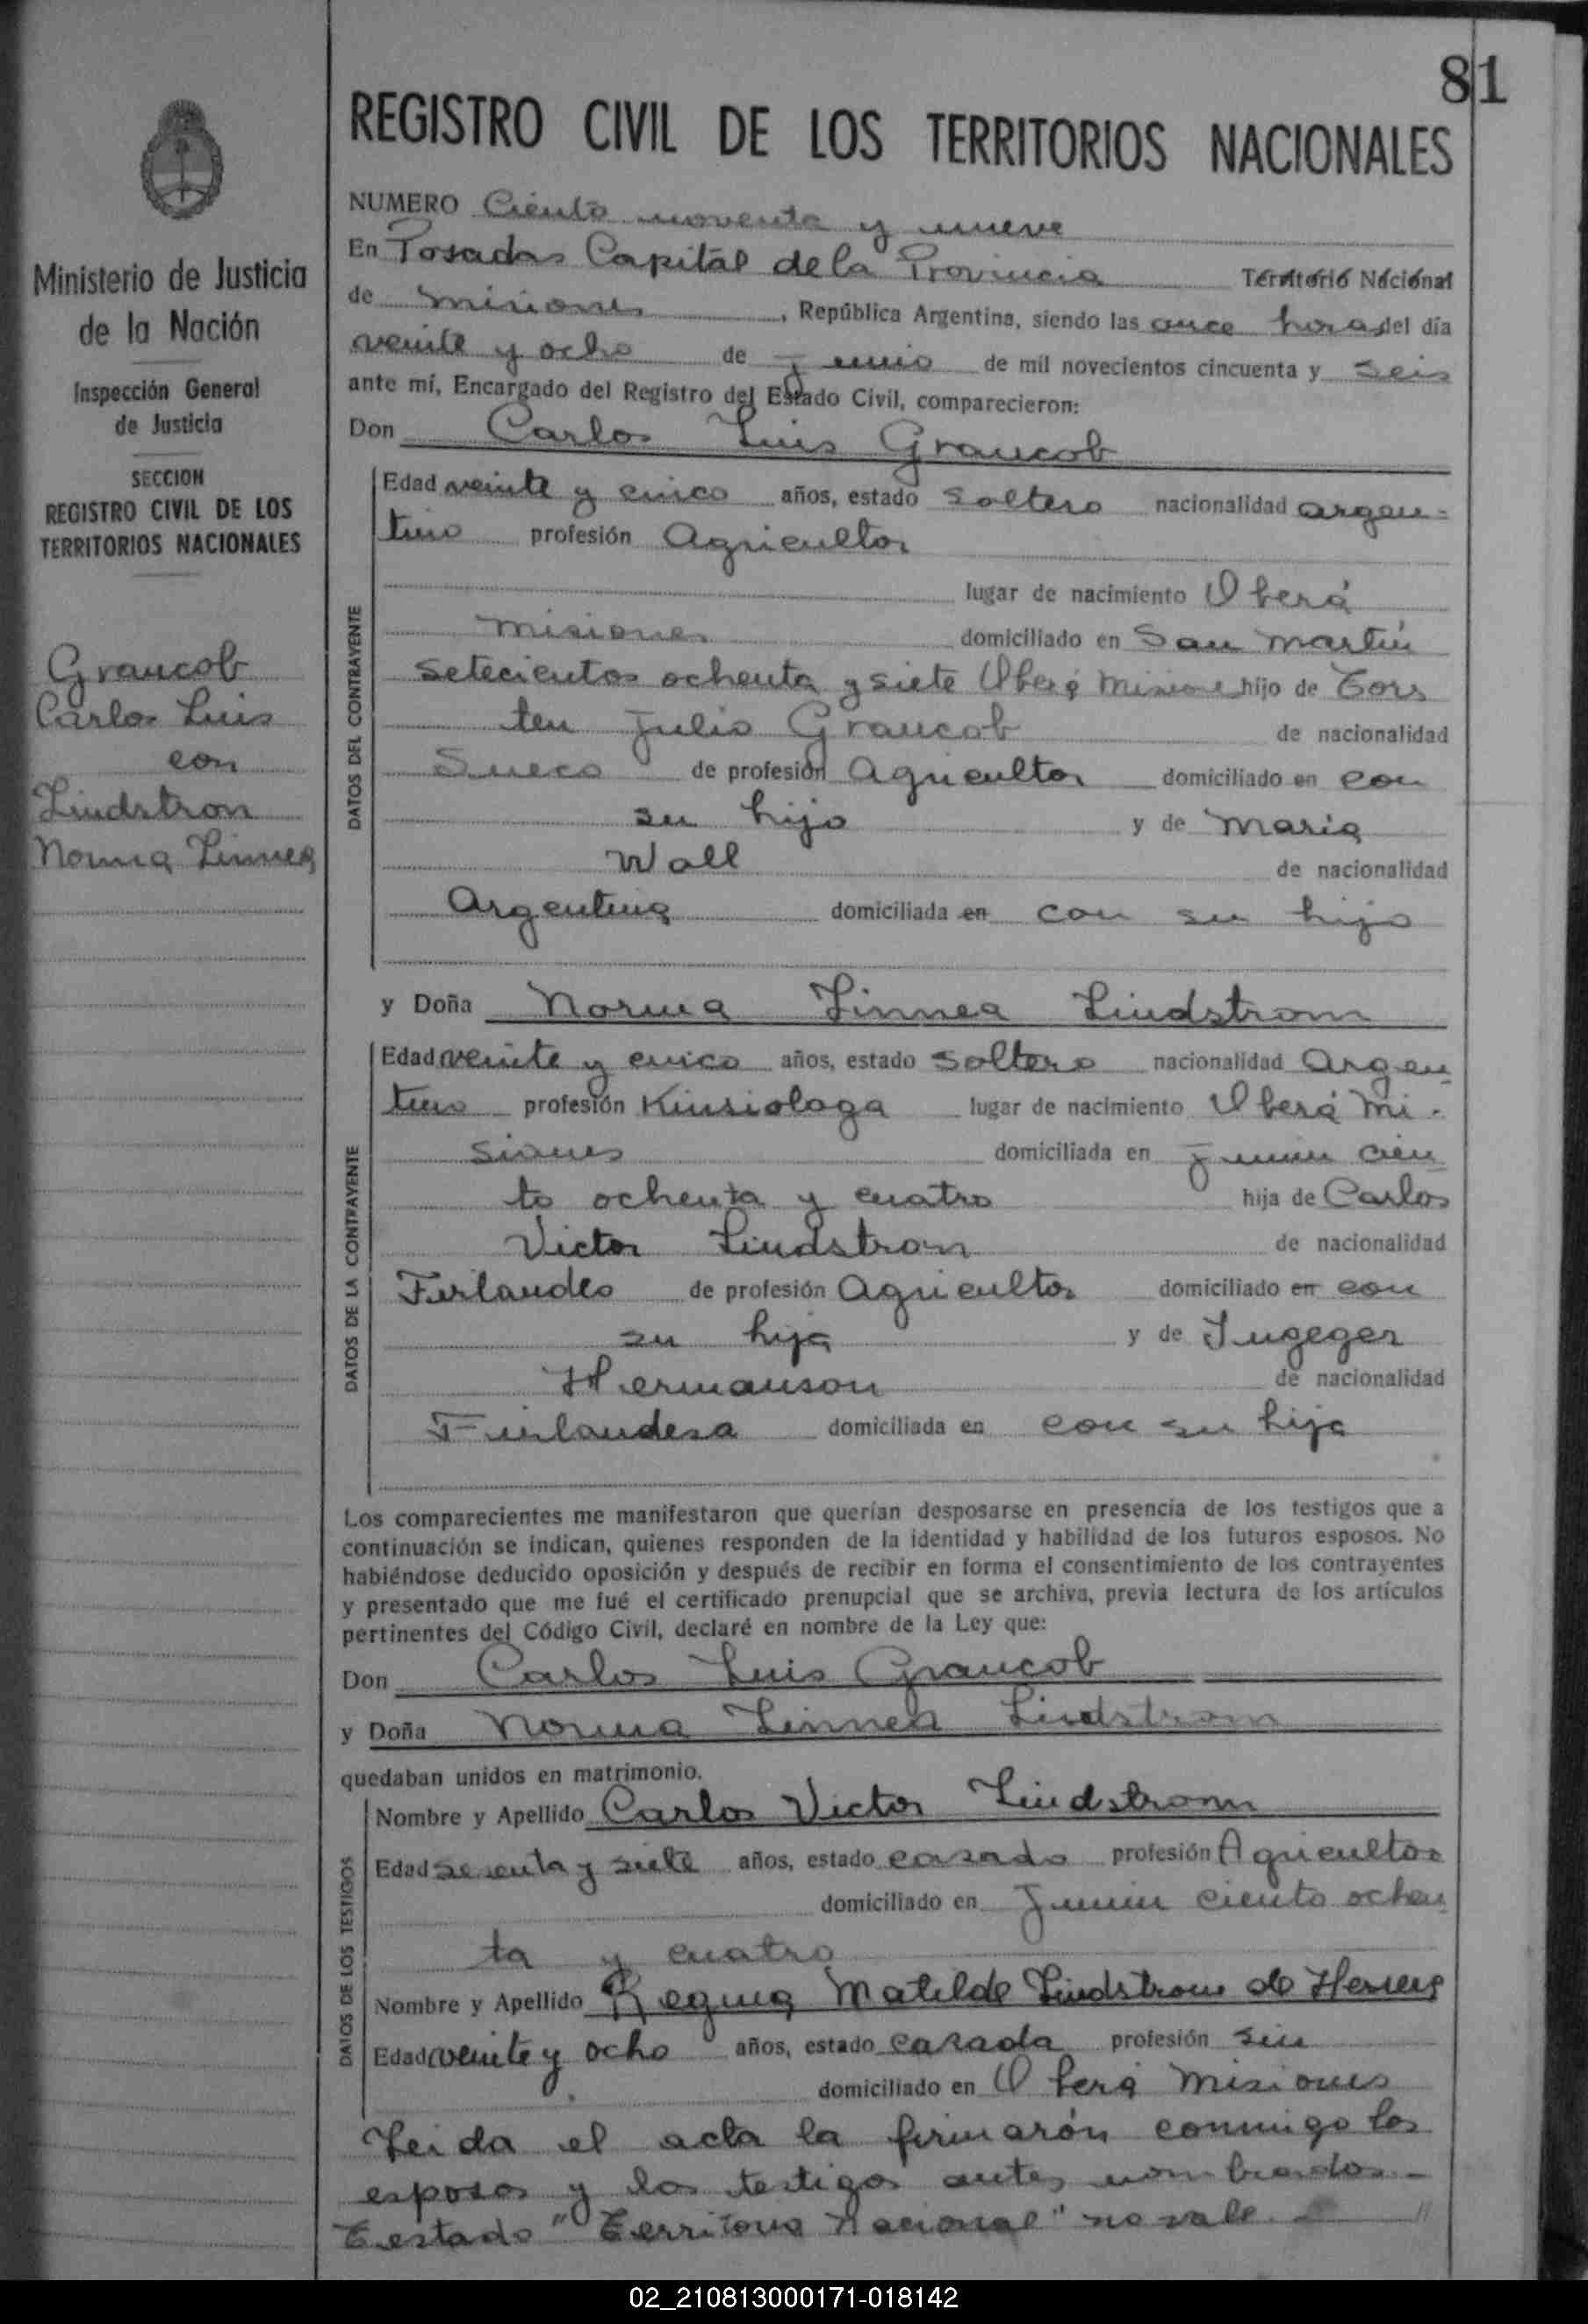 81
REGISTRO CIVIL DE LOS TERRITORIOS NACIONALES
Ministerio de Justicia
de la Nación
Inspección General
de Justicia
SECCION
REGISTRO CIVIL DE LOS
TERRITORIOS NACIONALES
Graucob
Carlos Luis
con
Lindstron
Norma Linnea
NUMERO Ciento noventa y nueve
En Posadas Capital de la Provincia Territorio Nacional
de Misiones, República Argentina, siendo las once horas del día
veinte y ocho de Junio de mil novecientos cincuenta y seis
ante mí, Encargado del Registro del Estado Civil, comparecieron:
Don Carlos Luis Graucob
DATOS DEL CONTRAYENTE
Edad veinte y cinco años, estado soltero nacionalidad argen-
tino profesión Agricultor
lugar de nacimiento Oberá
Misiones domiciliado en San Martín
setecientos ochenta y siete Oberá Misiones hijo de Tors
ten Julio Graucob de nacionalidad
Sueco de profesión Agricultor domiciliado en con
su hijo y de Maria
Wall de nacionalidad
Argentina domiciliada en con su hijo
y Doña Norma Linnea Lindstrom
DATOS DE LA CONTRAYENTE
Edad veinte y cinco años, estado soltera nacionalidad Argen
tino profesión Kinsiologa lugar de nacimiento Oberá Mi-
siones domiciliada en Junin cien
to ochenta y cuatro hija de Carlos
Victor Lindstron de nacionalidad
Finlandes de profesión Agricultor domiciliado en con
su hija y de Ingeger
Hermanson de nacionalidad
Finlandesa domiciliada en con su hija
Los comparecientes me manifestaron que querían desposarse en presencia de los testigos que a
continuación se indican, quienes responden de la identidad y habilidad de los futuros esposos. No
habiéndose deducido oposición y después de recibir en forma el consentimiento de los contrayentes
y presentado que me fué el certificado prenupcial que se archiva, previa lectura de los artículos
pertinentes del Código Civil, declaré en nombre de la Ley que:
Don Carlos Luis Graucob
y Doña Norma Linnea Lindstrom
quedaban unidos en matrimonio.
DATOS DE LOS TESTIGOS
Nombre y Apellido Carlos Victor Lindstrom
Edad sesenta y siete años, estado casado profesión Agricultor
domiciliado en Junin ciento ochen
ta y cuatro
Nombre y Apellido Regina Matilde Lindstrom de
Edad veinte y ocho años, estado casada profesión sin
domiciliado en Oberá Misiones
Leida el acta la firmarón conmigo los
esposos y los testigos antes nombrados-
Testado "Territorio Nacional" no vale
02_210813000171-018142